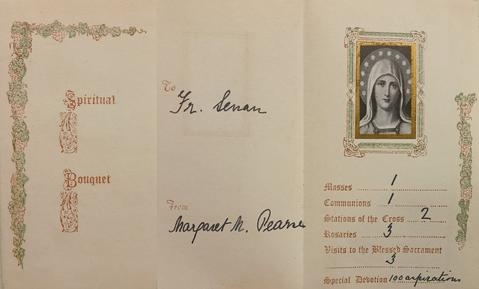 Spiritual
Bouquet
To
Fr. Senan
From
Margaret M. Pearse
Masses 1
Communions 1
Stations of the Cross 2
Rosaries 3
Visits to the Blessed Sacrament
3
Special Devotion 100 aspirations